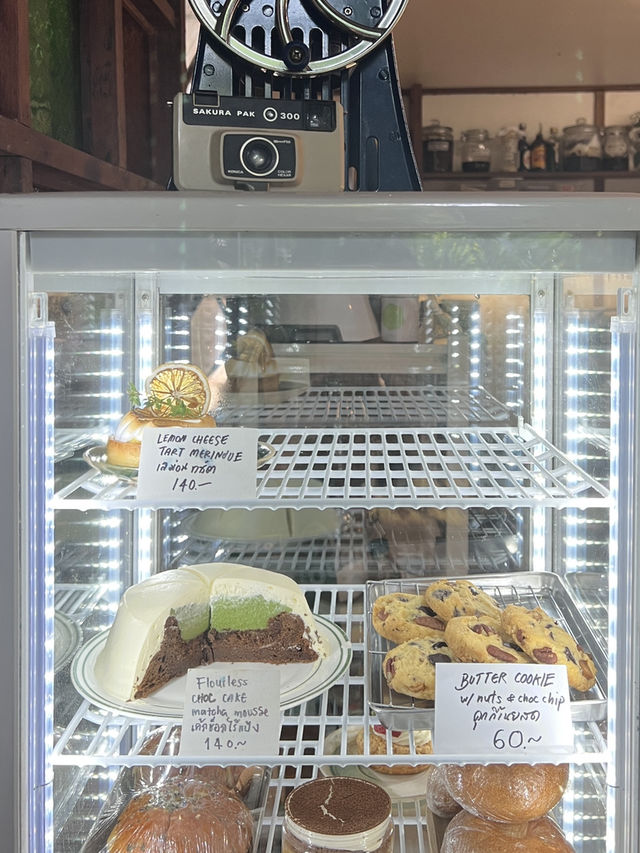 SAKURA PAK 300
KONICA
COLOR
LEMON CHEESE
TART MERINGUE
เลม่อน ทาร์ต
140.-
Flourless
CHOC CAKE
matcha mousse
เค้กช็อคไร้แป้ง
140.~
BUTTER COOKIE
w/ nuts & choc chip
คุกกี้เนยสด
60.~